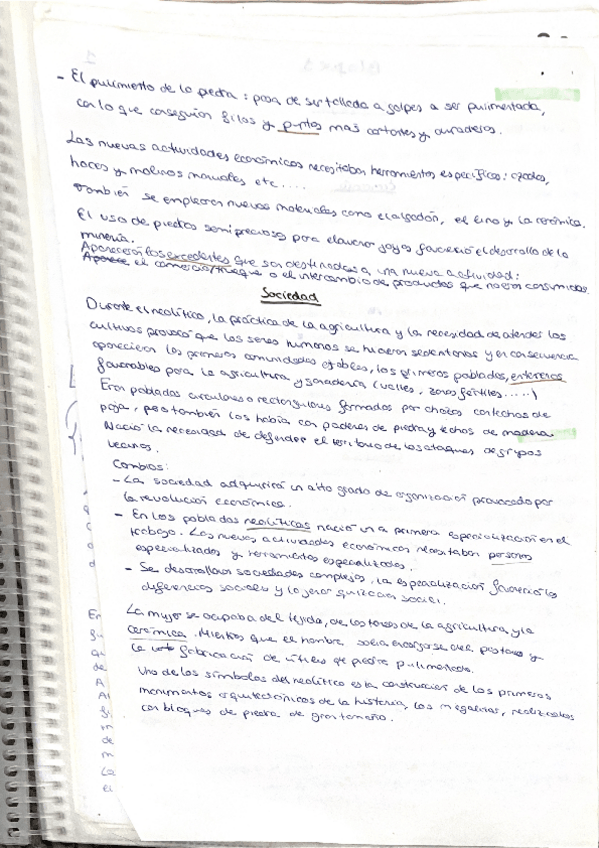 - El pulimento de la piedra: pasa de ser tallada a golpes a ser pulimentada,
con lo que conseguían filos y puntas mas cortantes y duraderos.
Las nuevas actividades económicas necesitaban herramientos especificos: azadas,
hoces y molinos manuales etc....
También se emplearon nuevos materiales como el algodón, el lino y la cerámica.
El uso de piedras semipreciosas para elaborar joyas favoreció el desarrollo de la
minería.
Aparecerón los excedentes que son destinados a una nueva actividad:
el comercio/trueque o el intercambio de productos que no eran consumidos.
Sociedad
Durante el neolítico, la práctica de la agricultura y la necesidad de atender los
cultivos provocó que los seres humanos se hicieran sedentarios y en consecuencia
aparecieron las primeras comunidades estables, los primeros poblados, en terrenos
favorables para la agricultura y ganadería (valles, zonas fértiles.....)
Eran poblados circulares o rectangulares formados por chozas con techos de
paja, pero también los había con paderes de piedra y techos de madera
Nació la necesidad de defender el territorio de los ataques de grupos
vecinos.
Cambios:
- La sociedad adquirirá un alto grado de organización provocado por
la revolución económica.
- En los poblados neolíticos nació una primera especialización en el
trabajo. Las nuevas actividades económicas necesitaban personas
especializados y herramientas especializadas.
- Se desarrollan sociedades complejas, la especialización favoreció las
diferencias sociales y la jerarquización social.
La mujer se ocupaba del tejido, de las tareas de la agricultura y la
cerámica. Mientras que el hombre solía encargarse del pastoreo y
la fabricación de útiles de piedra pulimentada.
Uno de los símbolos del neolítico es la construcion de los primeros
monumentos arquitectónicos de la historia, los megalitos, realizados
con bloques de piedra de gran tamaño.